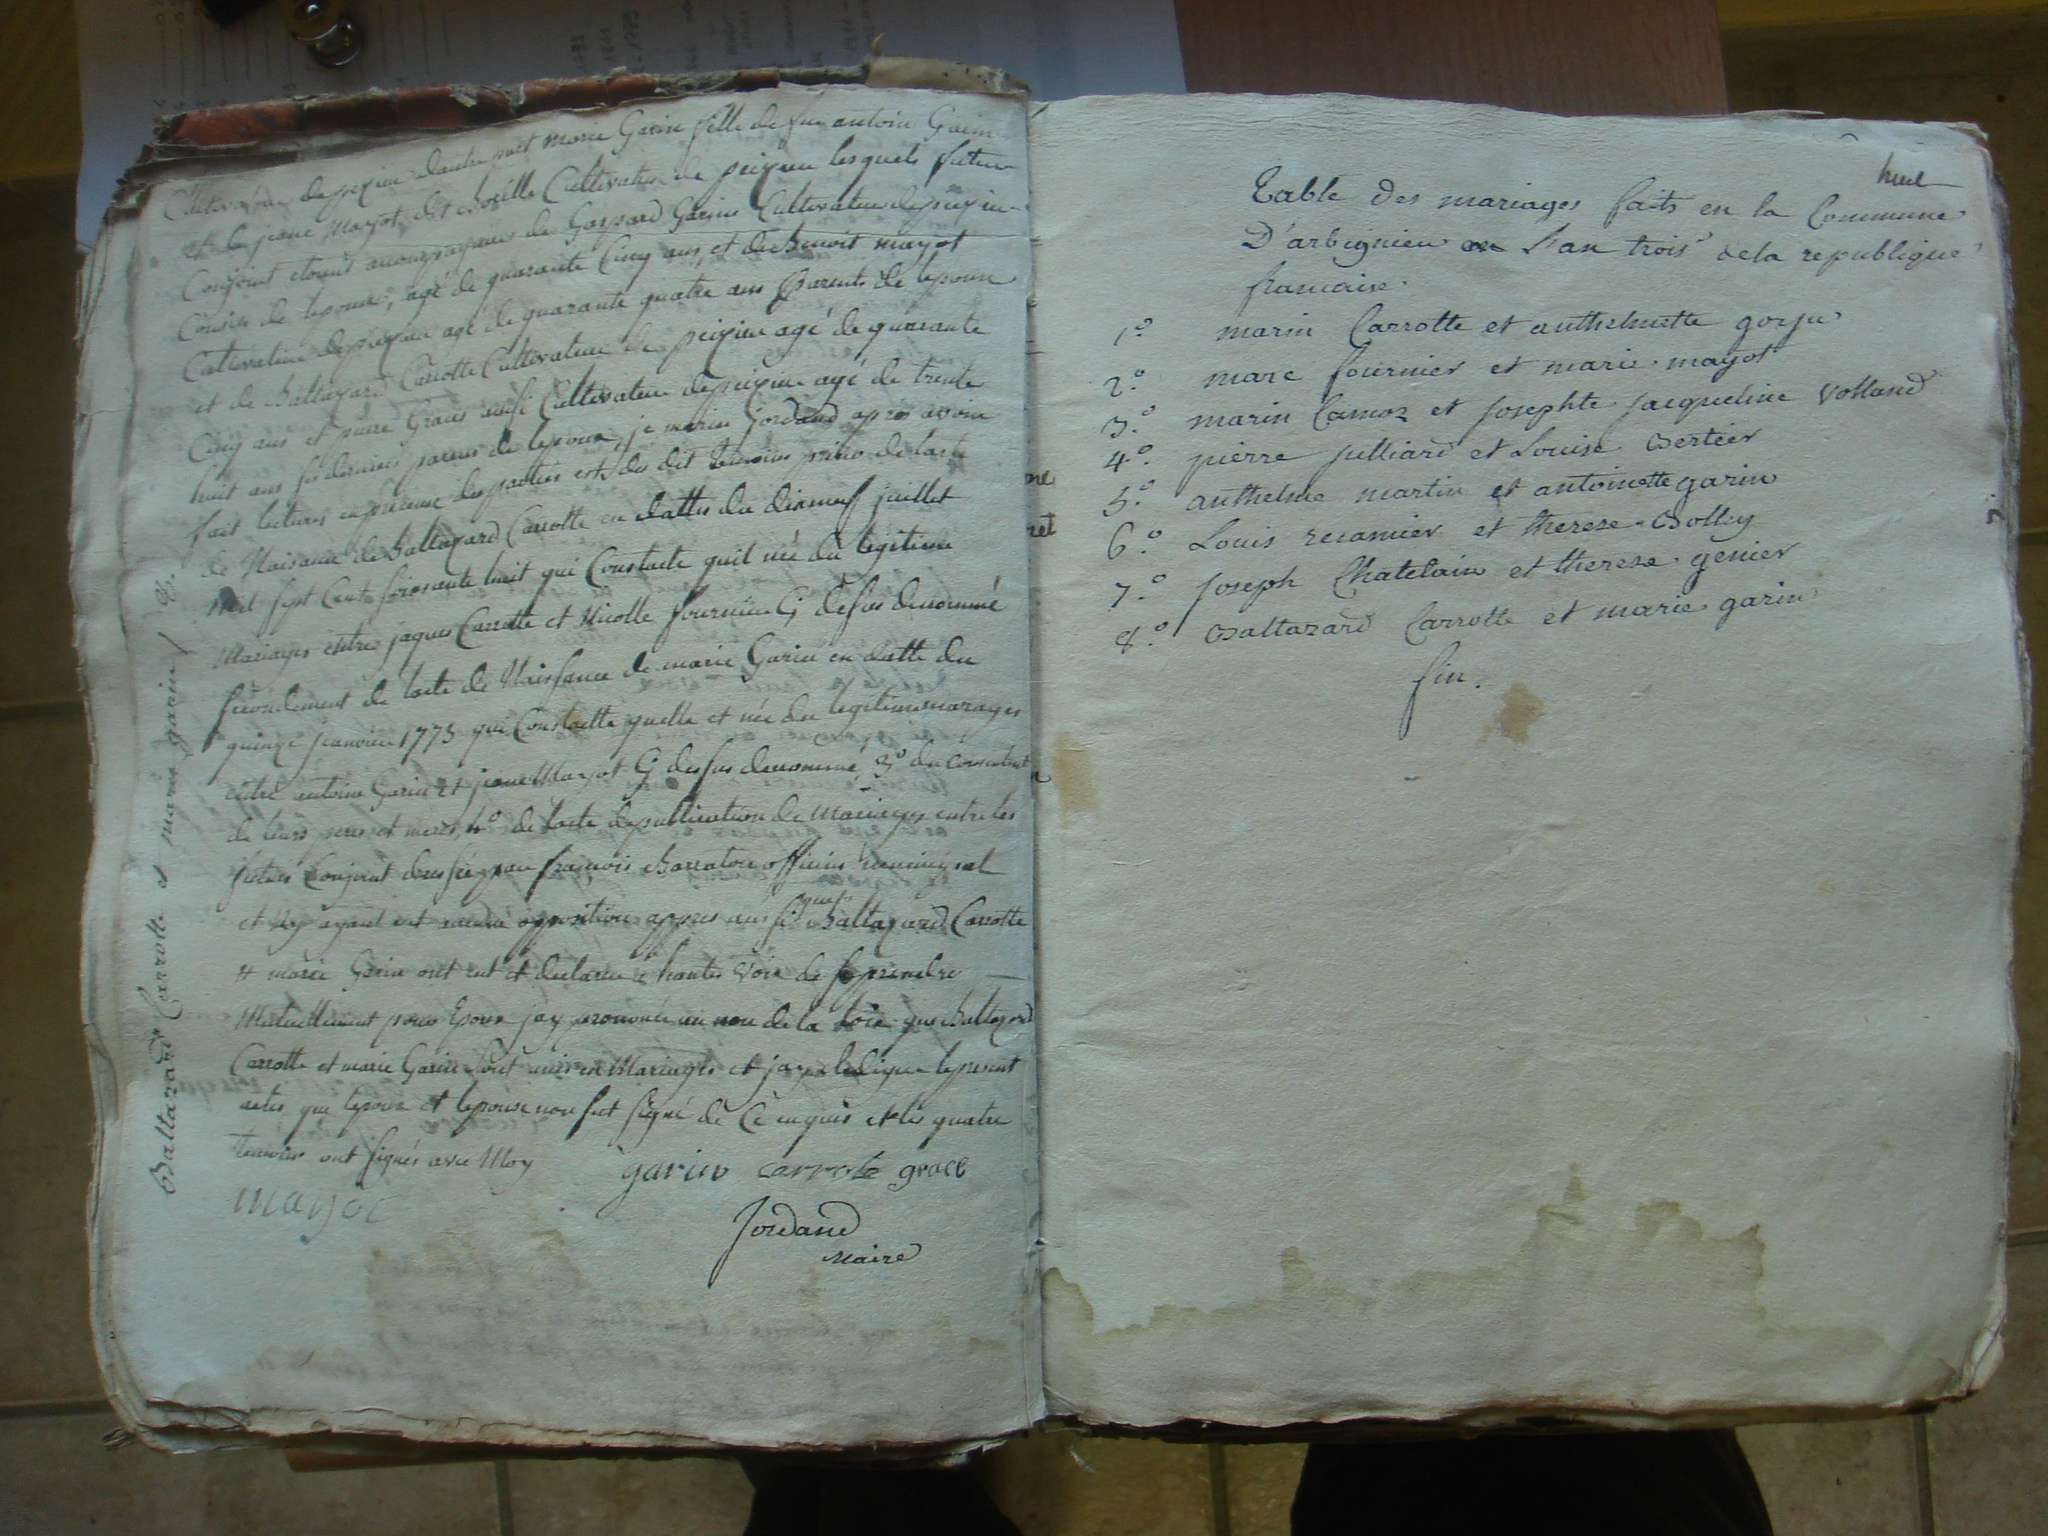 Cultivateur de peizieu dautre part marie Garin fille de feu antoine Garin
et de jeane Mayot, dit Boeille Cultivateur de peizieu lesquels futur
Conjoint etant accompagnies de Gaspard Garins Cultivateur de peizieu
Cousin de lepouse, agé de quarante Cinq ans, et de Benoit mayot
Cultivateur de peizieu agé de quarante quatre ans parents de lepouse
et de Baltazard Carrotte Cultivateur de peizieu agé de quarante
Cinq ans et pierre Graces aussi Cultivateur de peizieu agé de trente
huit ans ses derniers parens de lepoux, je marin Jordand apres avoir
fait lectures en presence des parties et des dit temoins primo de lacte
de Naisance de Baltazard Carrotte en dattes du dixneuf juillet
mil sept Cents soixsante huit qui Constacte quil née du legitime
Mariages entre jaques Carrotte et Nicolle fournier Cy desus denommé
secondement de lacte de Naissance de marie Garin en datte du
quinze janvier 1773 qui Constactte quelle et née du legitime mariages
entre antoine Garin et jeane Mayot Cy dessus denommé, 3º du consentent
de leurs peres et meres, 4º de lacte de publication de Mariages entre les
futurs Conjoint dressé par francois Barraton officier municipal
et Ny ayant eut aucune opposition appres aussi que Baltazard Carrotte
et marie Garin ont eut et declarée a hautes voix de se prendre
Mutuellement pour Epoux jay prononcée au nom de la loie que Baltazard
Carrotte et marie Garin sont unis en Mariages et jay redigée le present
actes que lepoux et lepouse non sut signé de Ce enquis et les quatre
temoins ont signés avec Moy
garin carrote grace
mayot
Jordand
maire
Baltazard Carrotte et marie garin / 8.
huit
Table des mariages faits en la Commune
D'arbignieu L'an trois de la republique
francaise.
1º. marin Carrotte et anthelmette goyju
2º. marc fournier et marie mayot
3º. marin Camoz et Josephte jacqueline Volland
4º. pierre Julliard et Louise Bertier
5º. anthelme martin et antoinette garin
6º. Louis recamier et therese Bolley
7º. Joseph Chatelain et therese genier
8º. Baltazard Carrotte et marie garin
fin.